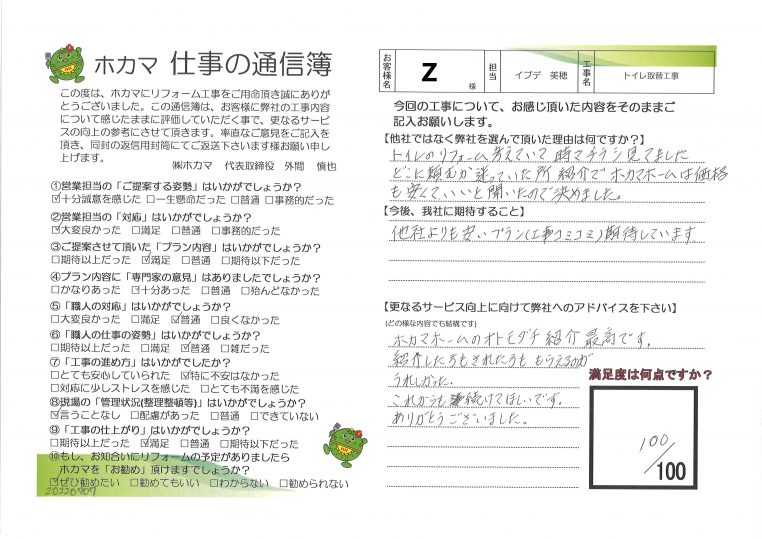 ホカマ 仕事の通信簿
この度は、ホカマにリフォーム工事をご用命頂き誠にありが
とうございました。この通信簿は、お客様に弊社の工事内容
について感じたままに評価していただく事で、更なるサービ
スの向上の参考にさせて頂きます。率直なご意見をご記入を
頂き、同封の返信用封筒にてご返送下さいます様お願い申し
上げます。
㈱ホカマ 代表取締役 外間 慎也
①営業担当の「ご提案する姿勢」はいかがでしょうか?
☑十分誠意を感じた □一生懸命だった □普通 □事務的だった
②営業担当の「対応」はいかがでしょうか?
☑大変良かった □満足 □普通 □事務的だった
③ご提案させて頂いた「プラン内容」はいかがでしょうか?
□期待以上だった ☑満足 □普通 □期待以下だった
④プラン内容に「専門家の意見」はありましたでしょうか?
□かなりあった ☑十分あった □普通 □殆んどなかった
⑤「職人の対応」はいかがでしょうか?
□大変良かった □満足 ☑普通 □良くなかった
⑥「職人の仕事の姿勢」はいかがでしょうか?
□期待以上だった □満足 ☑普通 □雑だった
⑦「工事の進め方」はいかがでしたか?
□とても安心していられた ☑特に不安はなかった
□対応に少しストレスを感じた □とても不満を感じた
⑧現場の「管理状況(整理整頓等)」はいかがでしょうか?
☑言うことなし □配慮があった □普通 □できていない
⑨「工事の仕上がり」はいかがでしょうか?
□期待以上だった ☑満足 □普通 □期待以下だった
⑩もし、お知合いにリフォームの予定がありましたら
ホカマを「お勧め」頂けますでしょうか?
☑ぜひ勧めたい □勧めてもいい □わからない □勧められない
20220707
お客様名 Z 様 担当 イブデ 美穂 工事名 トイレ取替工事
今回の工事について、お感じ頂いた内容をそのままご
記入お願いします。
【他社ではなく弊社を選んで頂いた理由は何ですか?】
トイレのリフォーム考えていて 時々チラシ見てました
どこに頼むか迷っていた所 紹介で ホカマホームは価格
も安くていいと聞いたので決めました。
【今後、我社に期待すること】
他社よりも安いプラン(工事コミコミ)期待しています
【更なるサービス向上に向けて弊社へのアドバイスを下さい】
(どの様な内容でも結構です)
ホカマホームのオトモダチ紹介 最高です。
紹介した方もされた方も もらえるのが
うれしかった。
これからも続けてほしいです。
ありがとうございました。
満足度は何点ですか?
100
/100